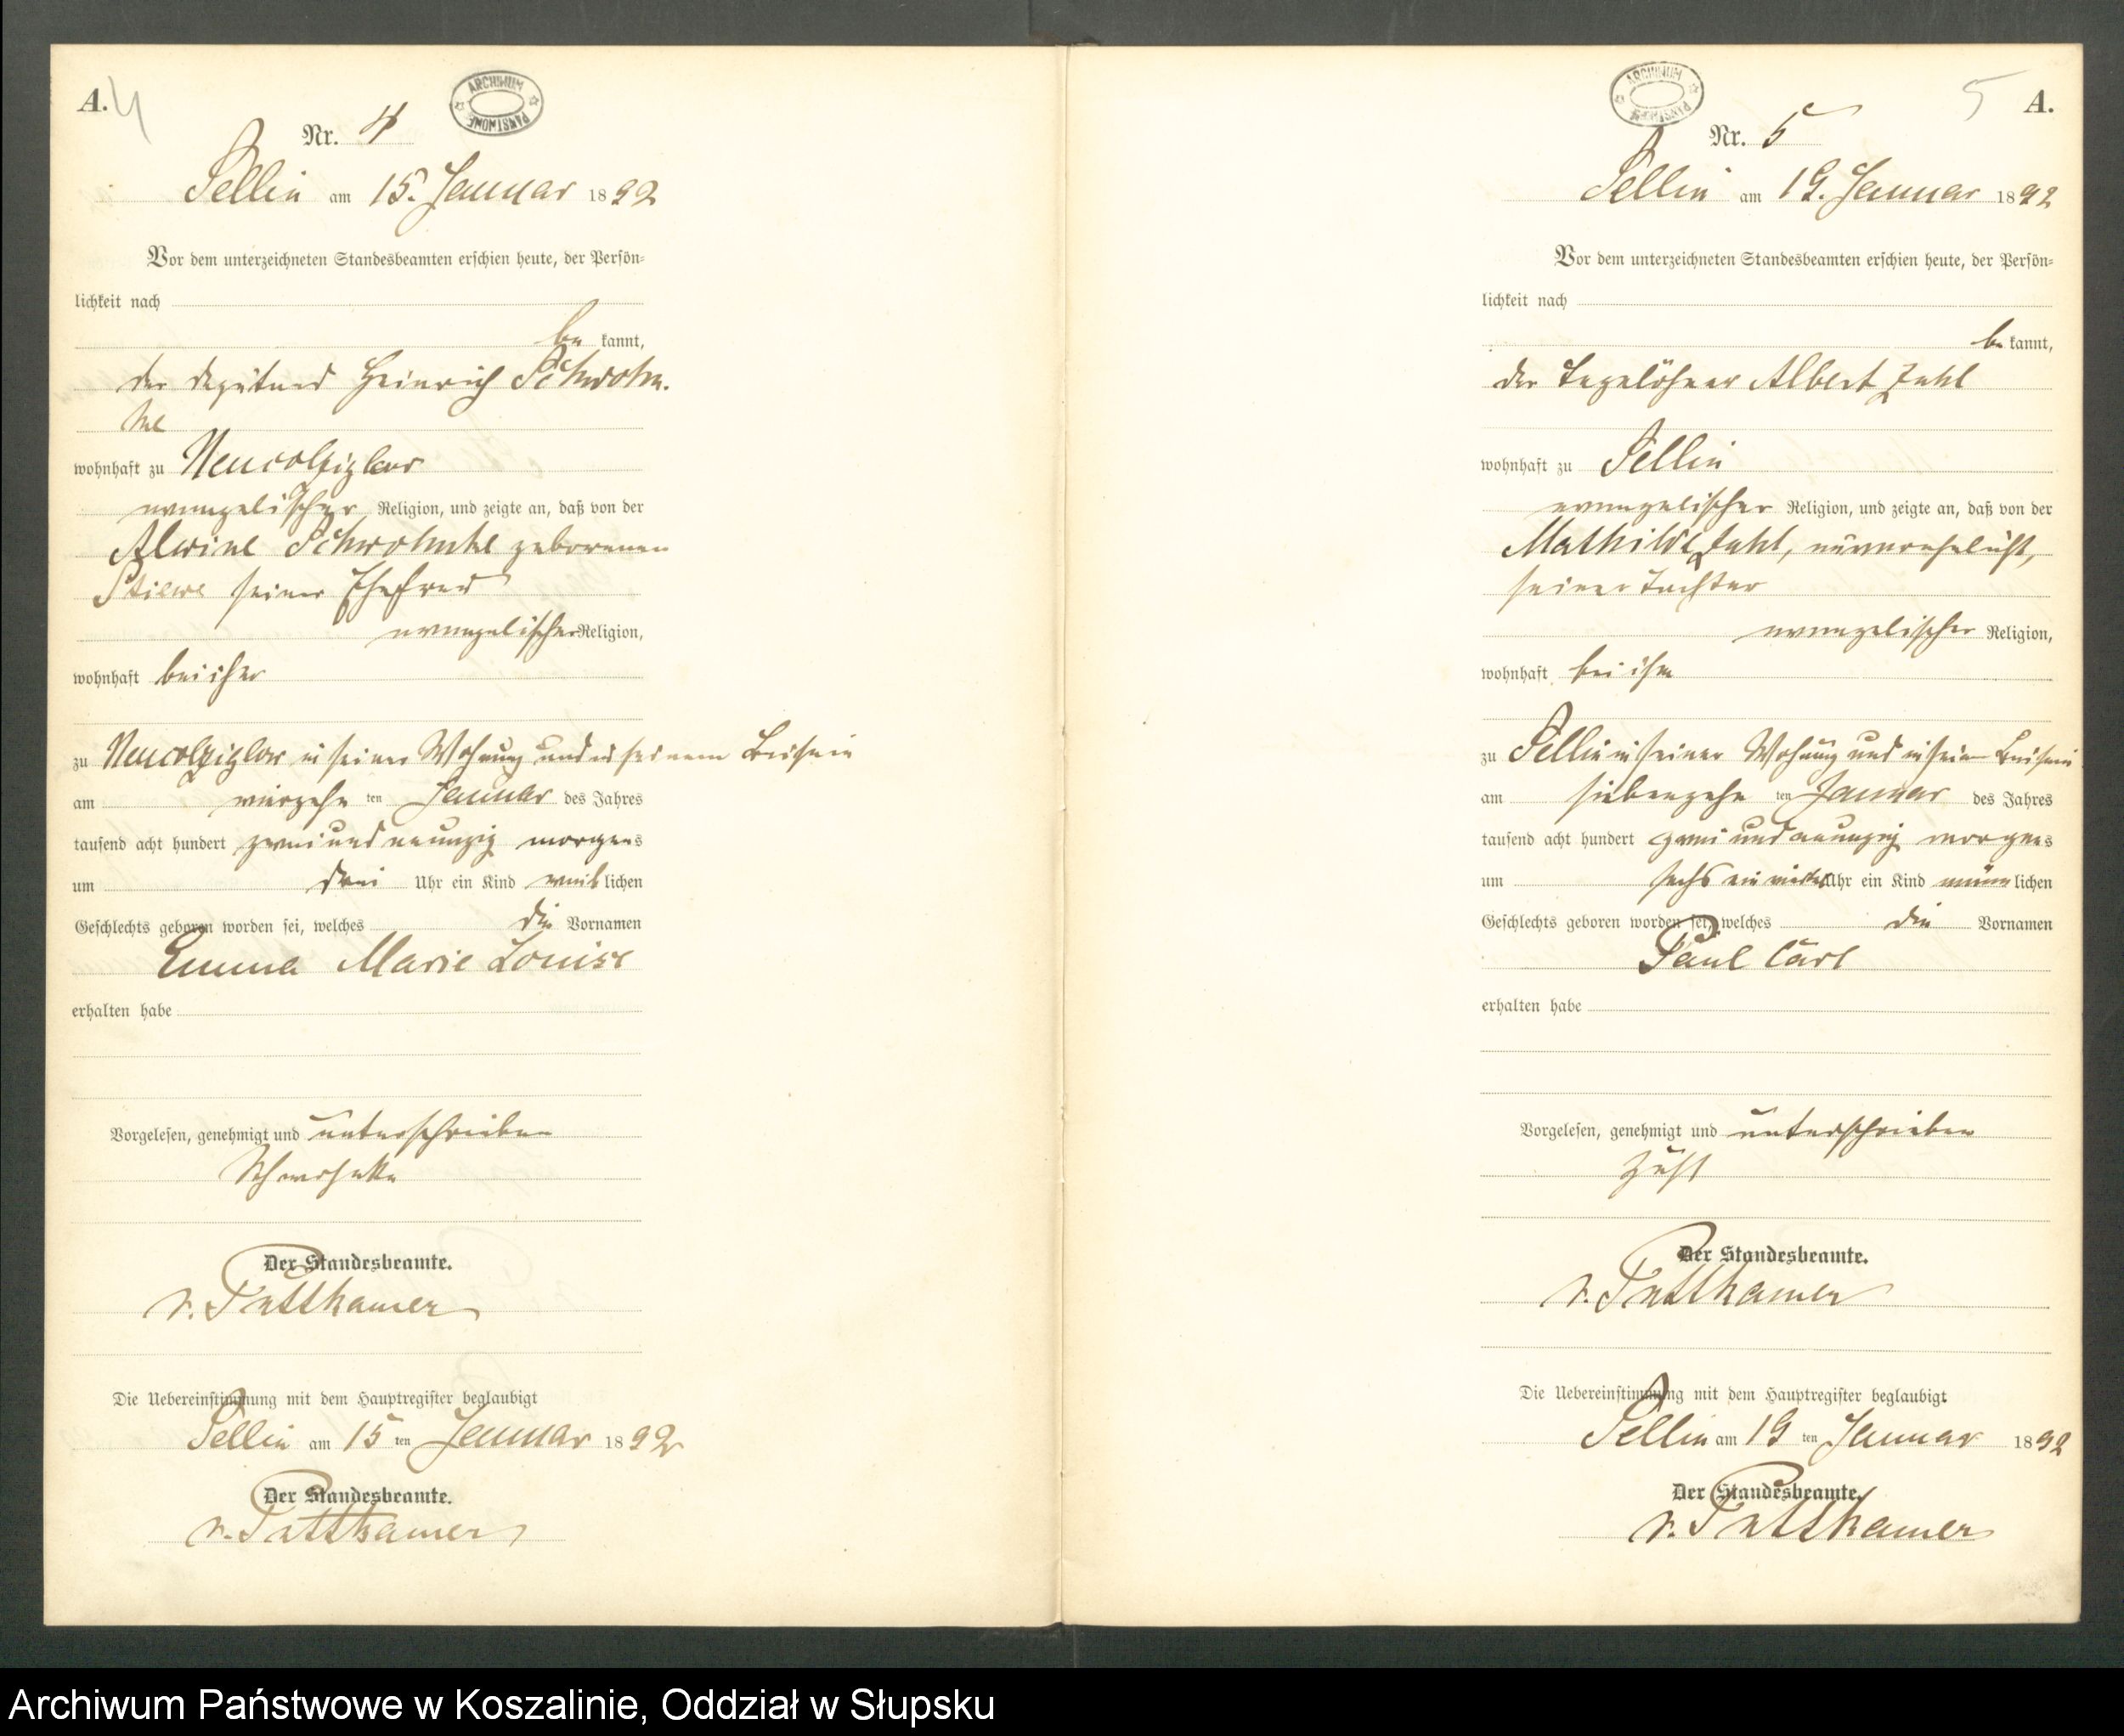 A. 4
ARCHIWUM PAŃSTWOWE
Nr. 4
Sellin am 15. Januar 1892
Vor dem unterzeichneten Standesbeamten erschien heute, der Persön-
lichkeit nach
be kannt,
der Deputant Heinrich Schwohn-
ke
wohnhaft zu Neucolziglow
evangelischer Religion, und zeigte an, daß von der
Alwine Schwohnke geborenen
Stiewe seiner Ehefrau
evangelischer Religion,
wohnhaft bei ihm
zu Neucolziglow in seiner Wohnung und in seinem Beisein
am vierzehn ten Januar des Jahres
tausend acht hundert zwei und neunzig morgens
um drei Uhr ein Kind weib lichen
Geschlechts geboren worden sei, welches die Vornamen
Emma Marie Louise
erhalten habe
Vorgelesen, genehmigt und unterschrieben
Der Standesbeamte.
v. Puttkamer
Die Uebereinstimmung mit dem Hauptregister beglaubigt
Sellin am 15 ten Januar 1892
Der Standesbeamte.
v. Puttkamer
5 A.
ARCHIWUM PAŃSTWOWE
Nr. 5
Sellin am 19. Januar 1892
Vor dem unterzeichneten Standesbeamten erschien heute, der Persön-
lichkeit nach
be kannt,
der Tagelöhner Albert
wohnhaft zu Sellin
evangelischer Religion, und zeigte an, daß von der
Mathilde unverehelicht,
seiner Tochter
evangelischer Religion,
wohnhaft bei ihm
zu Sellin in seiner Wohnung und in sein Beisein
am siebenzehn ten Januar des Jahres
tausend acht hundert zwei und neunzig morgens
um sechs ein viertel Uhr ein Kind männ lichen
Geschlechts geboren worden sei, welches die Vornamen
Paul Carl
erhalten habe
Vorgelesen, genehmigt und unterschrieben
Der Standesbeamte.
v. Puttkamer
Die Uebereinstimmung mit dem Hauptregister beglaubigt
Sellin am 19 ten Januar 1892
Der Standesbeamte.
v. Puttkamer
Archiwum Państwowe w Koszalinie, Oddział w Słupsku